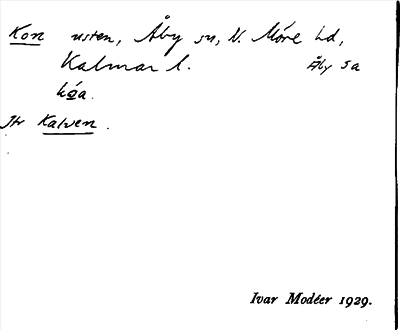 Kon usten, Åby sn, N. Möre hd,
Kalmar l. Åby sa
kóa.
Jfr Kalven.
Ivar Modéer 1929.